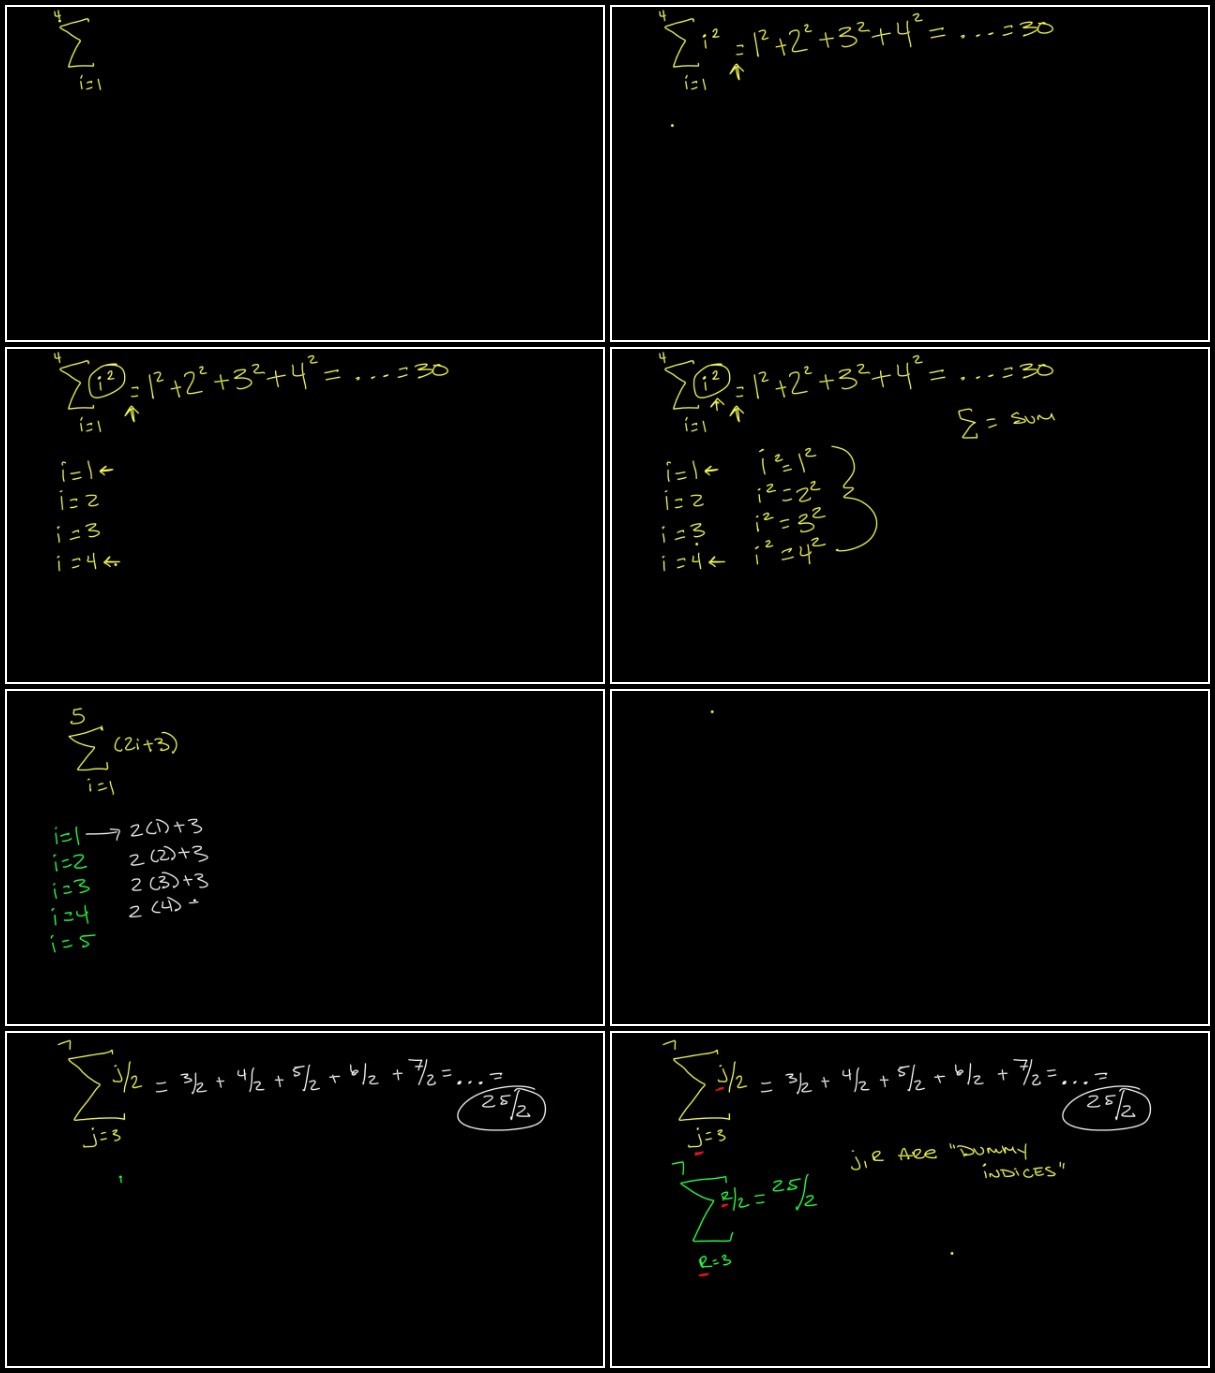 4
∑
i=1
4
∑ i² = 1² + 2² + 3² + 4² = .... = 30
i=1 ↑
4
∑ i² = 1² + 2² + 3² + 4² = .... = 30
i=1 ↑
i=1 ←
i=2
i=3
i=4 ←
4
∑ i² = 1² + 2² + 3² + 4² = .... = 30
i=1 ↑ ↑
∑ = SUM
i=1 ← i²=1²
i=2 i²=2²
i=3 i²=3²
i=4 ← i²=4²
5
∑ (2i+3)
i=1
i=1 → 2(1)+3
i=2 2(2)+3
i=3 2(3)+3
i=4 2(4)
i=5
7
∑ j/2 = 3/2 + 4/2 + 5/2 + 6/2 + 7/2 = ... =
25/2
j=3
7
∑ j/2 = 3/2 + 4/2 + 5/2 + 6/2 + 7/2 = ... =
25/2
j=3
j,R ARE "DUMMY
INDICES"
7
∑ R/2 = 25/2
R=3